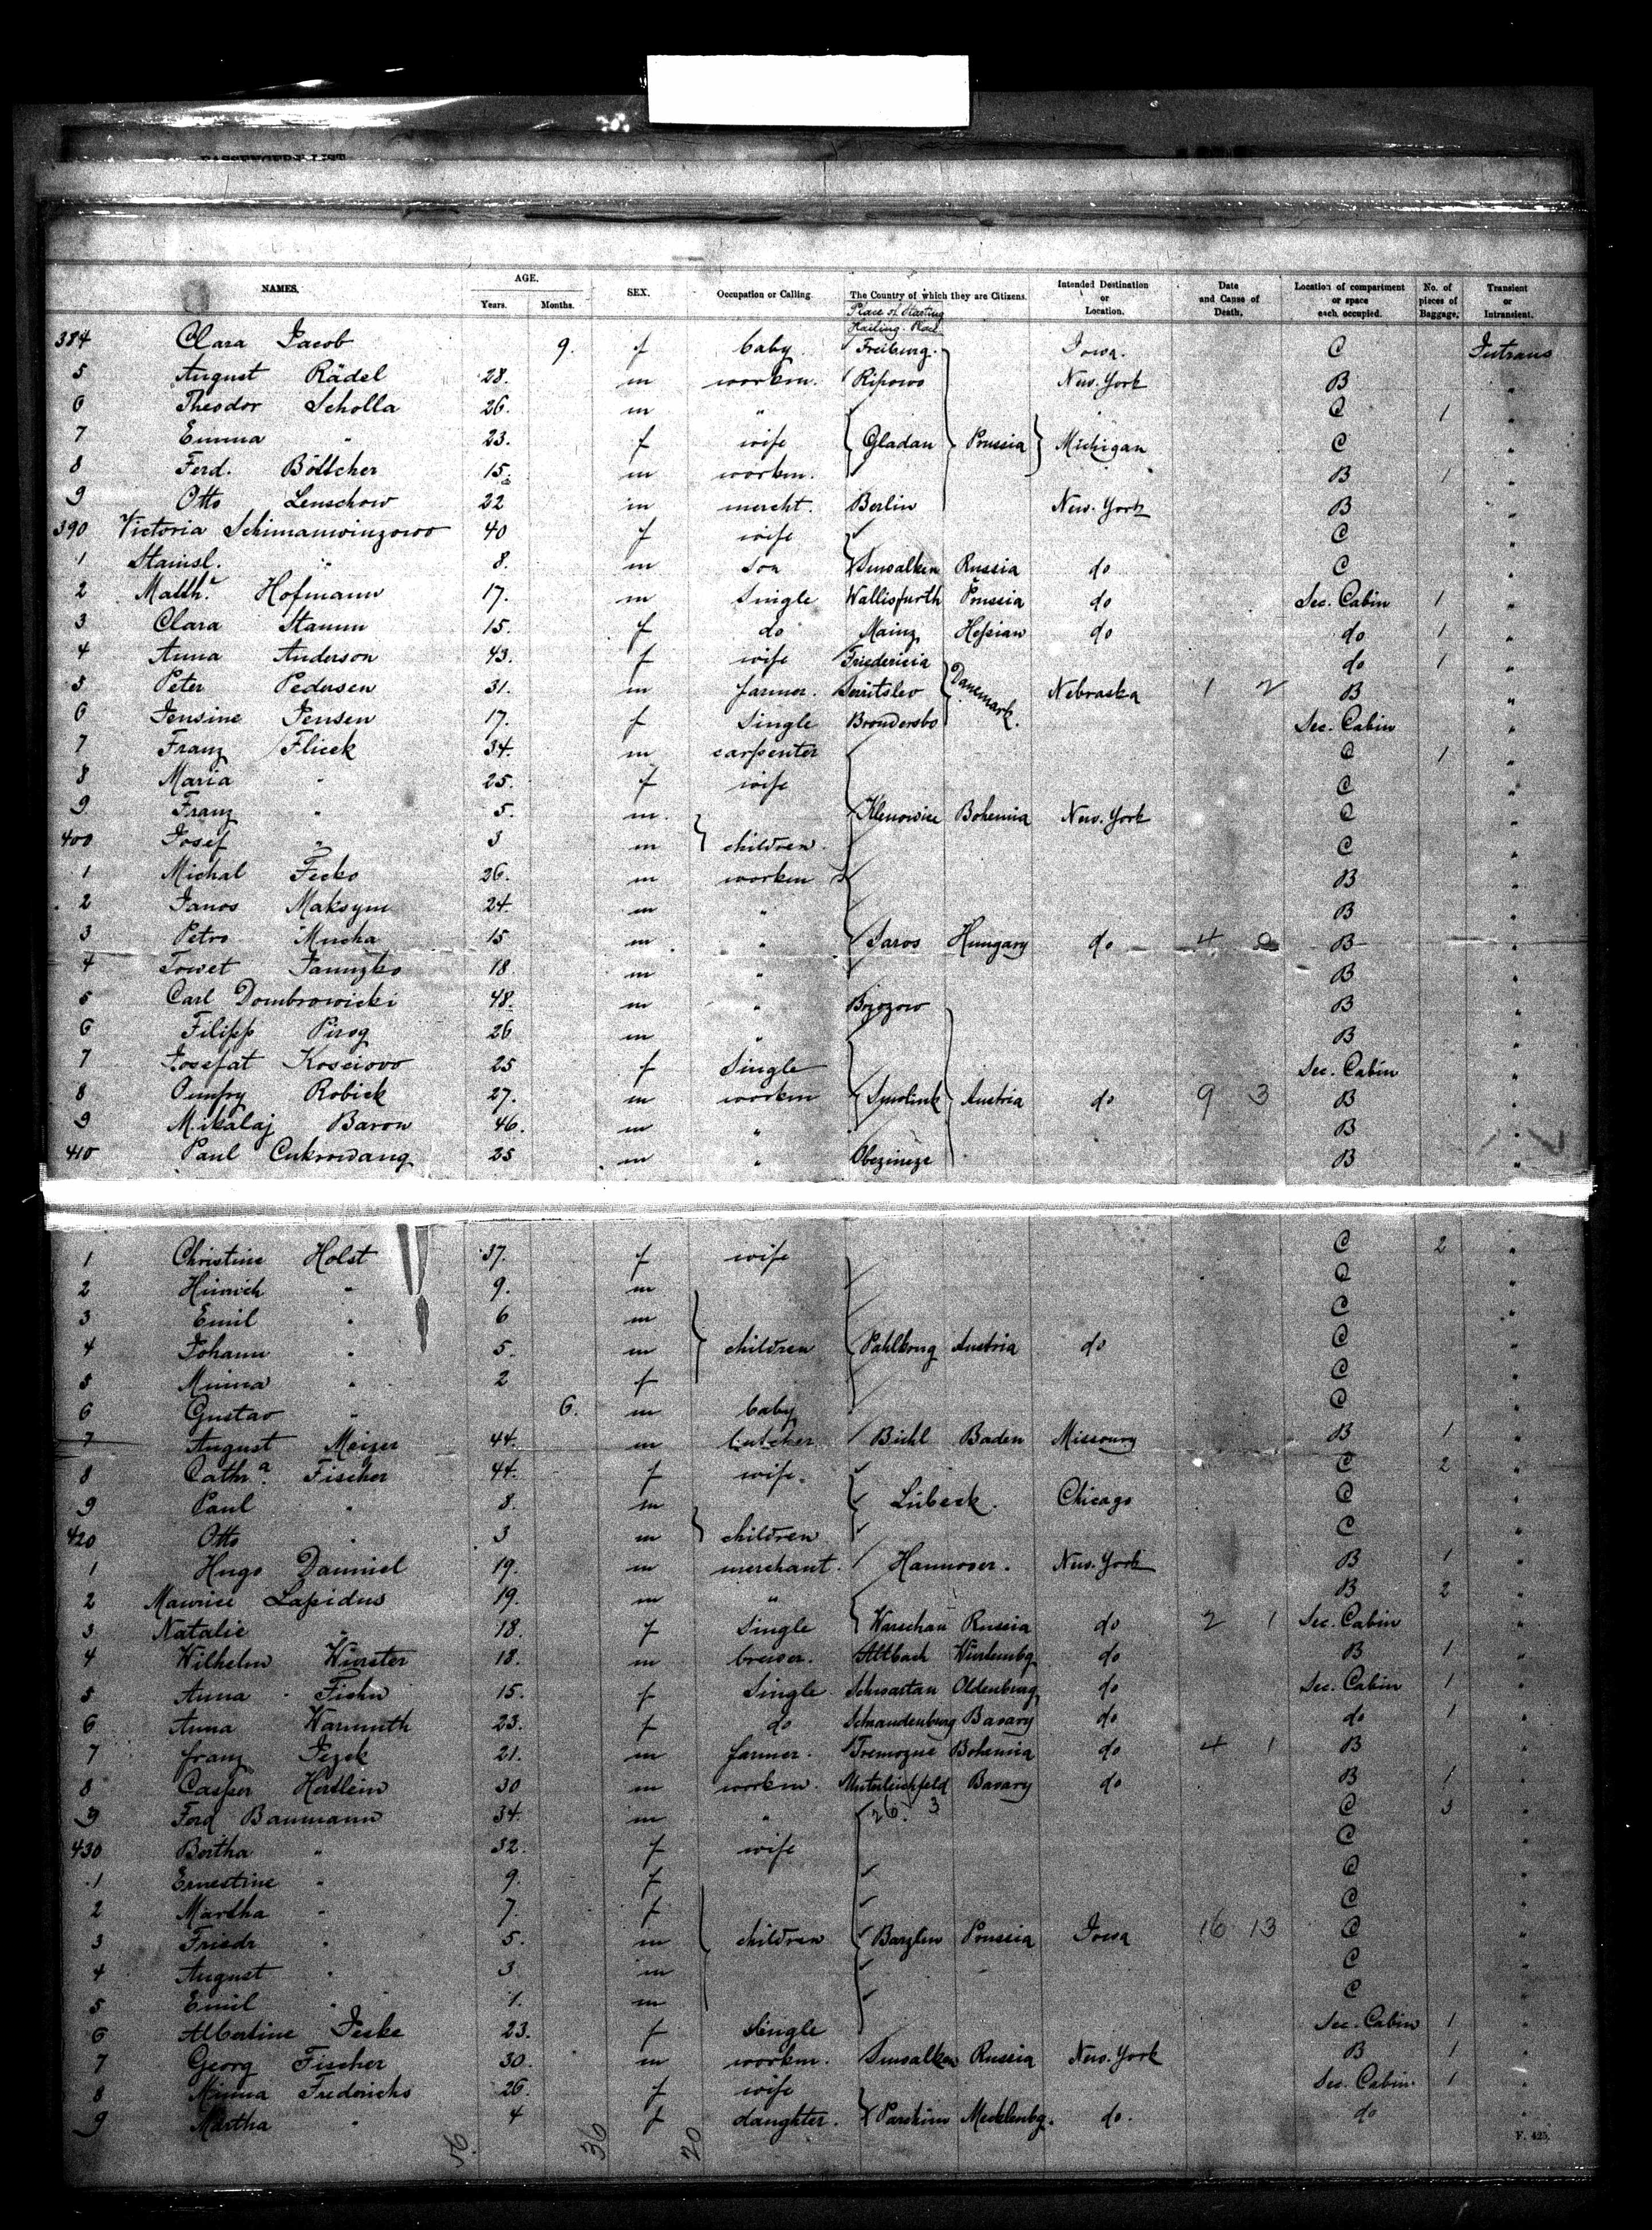 NAMES. AGE. Years. Months. SEX. Occupation or Calling. The Country of which they are Citizens. Intended Destination or Location. Date and Cause of Death. Location of compartment or space each occupied. No. of pieces of Baggage. Transient or Intransient.
Place of Starting
384 Clara Jacob 9. f baby Freiburg. Iowa. C Intrans
5 August Rädel 28. m workm. Ripowo New-York B "
6 Theodor Scholla 26. m " C 1 "
7 Emma " 23. f wife Gladau Prussia Michigan C "
8 Ferd. Böttcher 15. m workm. B 1 "
9 Otto Lenschow 22 m mercht. Berlin New-York B "
390 Victoria Schimanwinzowo 40 f wife C "
1 Stanisl. " 8. m son Suwalken Russia do C "
2 Matth. Hofmann 17. m Single Wallisfurth Prussia do Sec. Cabin 1 "
3 Clara Stamm 15. f do Mainz Hessian do do 1 "
4 Anna Anderson 43. f wife Fridericia do 1 "
5 Peter Pedersen 31. m farmer. Serritslev Danemark. Nebraska 1 2 B "
6 Jensine Jensen 17. f Single Brondersbo Sec. Cabin "
7 Franz Flicek 34. m carpenter C 1 "
8 Maria " 25. f wife C "
9 Franz " 5. m. Klenowice Bohemia New-York C "
400 Josef " 3 m children. C "
1 Michal Fecko 26. m workm B "
2 Janos Maksym 24. m " B "
3 Petro Mucha 15 m " Saros Hungary do 4 0 B "
4 Towet Januzko 18 m " B "
5 Carl Dombrowicki 48. m " Brzozow B "
6 Filipp Pirog 26 m " B "
7 Josefat Kosciovo 25 f Single Sec. Cabin "
8 Oumfry Robick 27. m workm Smolink Austria do 9 3 B "
9 Mikalaj Baron 46. m " B "
410 Paul Cukrowang 25 m " Obezineze B "
1 Christine Holst 37. f wife C 2 "
2 Hinrich " 9. m C "
3 Emil " 6 m C "
4 Johann " 5. m children Pahlkrug Austria do C "
5 Minna " 2 f C "
6 Gustav " 6. m baby C "
7 August Meizer 44. m butcher Bühl Baden Missoury B 1 "
8 Cathra. Fischer 44. f wife. C 2 "
9 Paul " 8. m Lübeck. Chicago C "
420 Otto " 3 m children C "
1 Hugo Damiel 19. m merchant. Hannover. New-York B 1 "
2 Maurice Lapidus 19. m " B 2 "
3 Natalie " 18. f Single Warschau Russia do 2 1 Sec. Cabin "
4 Wilhelm Wurster 18. m brewer. Altbach Würtembg do B 1 "
5 Anna Fiehn 15. f Single Schwartau Oldenburg do Sec. Cabin 1 "
6 Anna Warmuth 23. f do Schraudenburg Bavary do do 1 "
7 Franz Jezek 21. m farmer. Tremozne Bohemia do 4 1 B "
8 Casper Herllein 30 m workm. Unterleichfeld Bavary do B 1 "
9 Ferd Baumann 34. m " 26. 3 C 3 "
430 Bertha " 32. f wife C "
1 Ernestine " 9. f C "
2 Martha " 7. f C "
3 Friedr " 5. m children Barzlin Prussia Iowa 16 13 C "
4 August " 3 m C "
5 Emil " 1. m C "
6 Albertine Jeske 23. f Single Sec. Cabin 1 "
7 Georg Fischer 30. m workm. Suwalken Russia New-York B 1 "
8 Minna Frederichs 26. f wife Sec. Cabin. 1 "
9 Martha " 4 f daughter. Parchim Mecklenbg. do. do "
56. 36 20
F. 425.